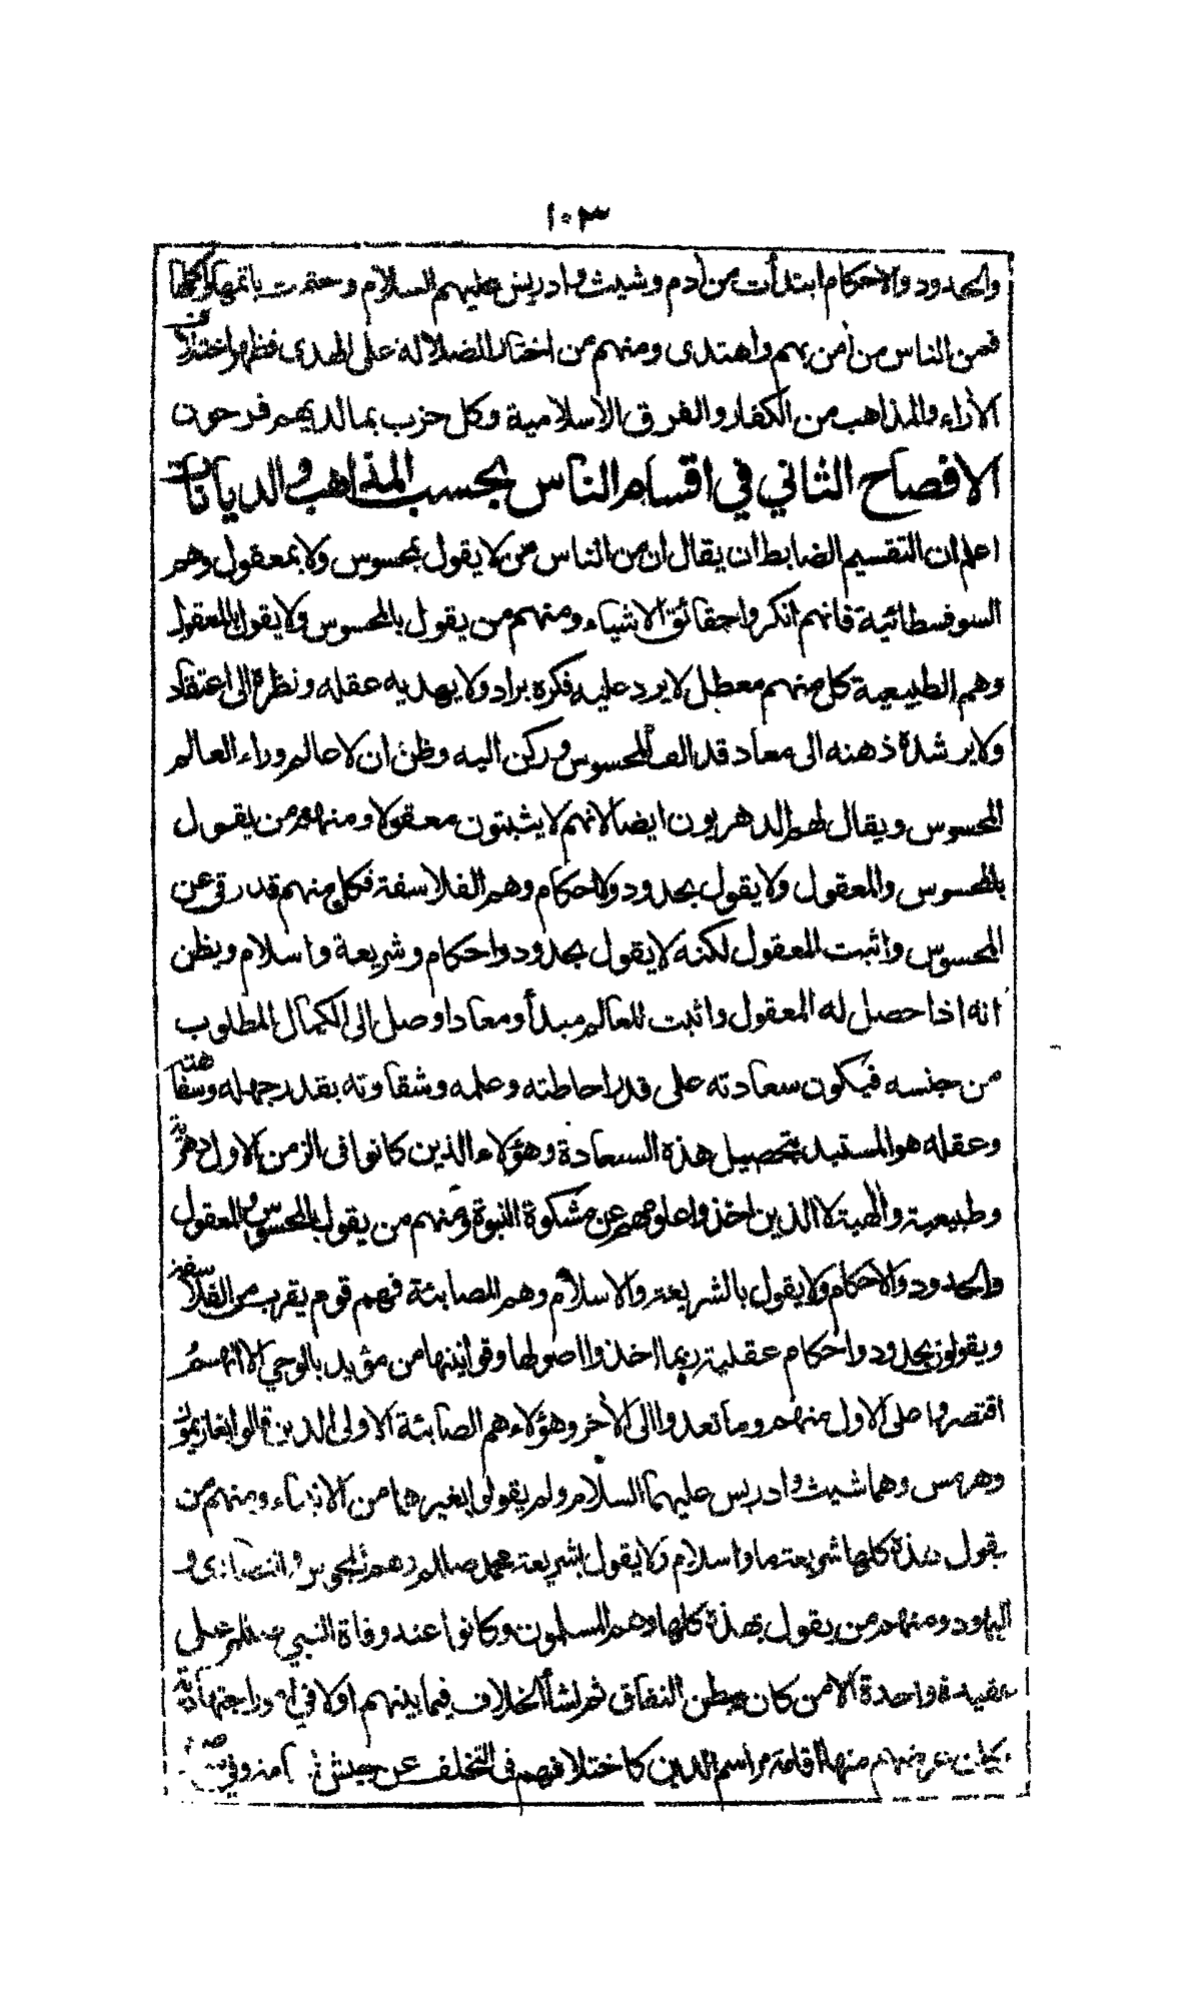 ١٠٣
والحدود والاحكام ابتدأت من أدم وشيث وادريس عليهم السلام وختمت باتمها واكملها
فمن الناس من أمن بهم واهتدى ومنهم من اختار الضلالة على الهدى فظهر اختلاف
الأراء والمذاهب من الكفار والفرق الاسلامية وكل حزب بما لديهم فرحون
الافصاح الثاني في اقسام الناس بحسب المذاهب والديانات
اعلم ان التقسيم الضابط ان يقال ان من الناس من لا يقول بمحسوس ولا بمعقول وهم
السوفسطائية فانهم انكروا حقائق الاشياء ومنهم من يقول بالمحسوس ولا يقول بالمعقول
وهم الطبيعية كل منهم معطل لا يرد عليه فكره براد ولا يهديه عقله ونظره الى اعتقاد
ولا يرشده ذهنه الى معاد قد الف المحسوس وركن اليه وظن ان لا عالم وراء العالم
المحسوس ويقال لهم الدهريون ايضا لانهم لا يثبتون معقولا ومنهم من يقول
بالمحسوس والمعقول ولا يقول بحدود ولا احكام وهم الفلاسفة فكل منهم قد رقى عن
المحسوس واثبت المعقول لكنه لا يقول بحدود واحكام وشريعة واسلام ويظن
انه اذا حصل له المعقول واثبت للعالم مبدأ ومعادا وصل الى الكمال المطلوب
من جنسه فيكون سعادته على قدر احاطته وعلمه وشقاوته بقدر جهله وسفاهته
وعقله هو المستبد بتحصيل هذه السعادة وهؤلاء الذين كانوا فى الزمن الاول دهرية
وطبيعية والهية لا الذين اخذوا علومهم عن مشكوة النبوة ومنهم من يقول بالمحسوس والمعقول
والحدود والاحكام ولا يقول بالشريعة والاسلام وهم الصابئة فهم قوم يقرب من الفلاسفة
ويقولون بحدود واحكام عقلية ربما اخذوا اصولها وقوانينها من مؤيد بالوحي الا انهم
اقتصروا على الاول منهم وما تعدوا الى الأخر وهؤلاء هم الصابئة الاولى الذين قالوا بغاذيمون
وهرمس وهما شيث وادريس عليهما السلام ولم يقولوا بغيرهما من الانبياء ومنهم من
يقول بهذه كلها شريعة ما واسلام ولا يقول بشريعة محمد صلعم وهم المجوس والنصارى و
اليهود ومنهم من يقول بهذه كلها وهم المسلمون وكانوا عند وفاة النبي صلعم على
عقيدة واحدة الا من كان يبطن النفاق ثم نشأ الخلاف فيما بينهم اولا في امور اجتهادية
كان غرضهم منها اقامة مراسم الدين كاختلافهم فى التخلف عن جيش